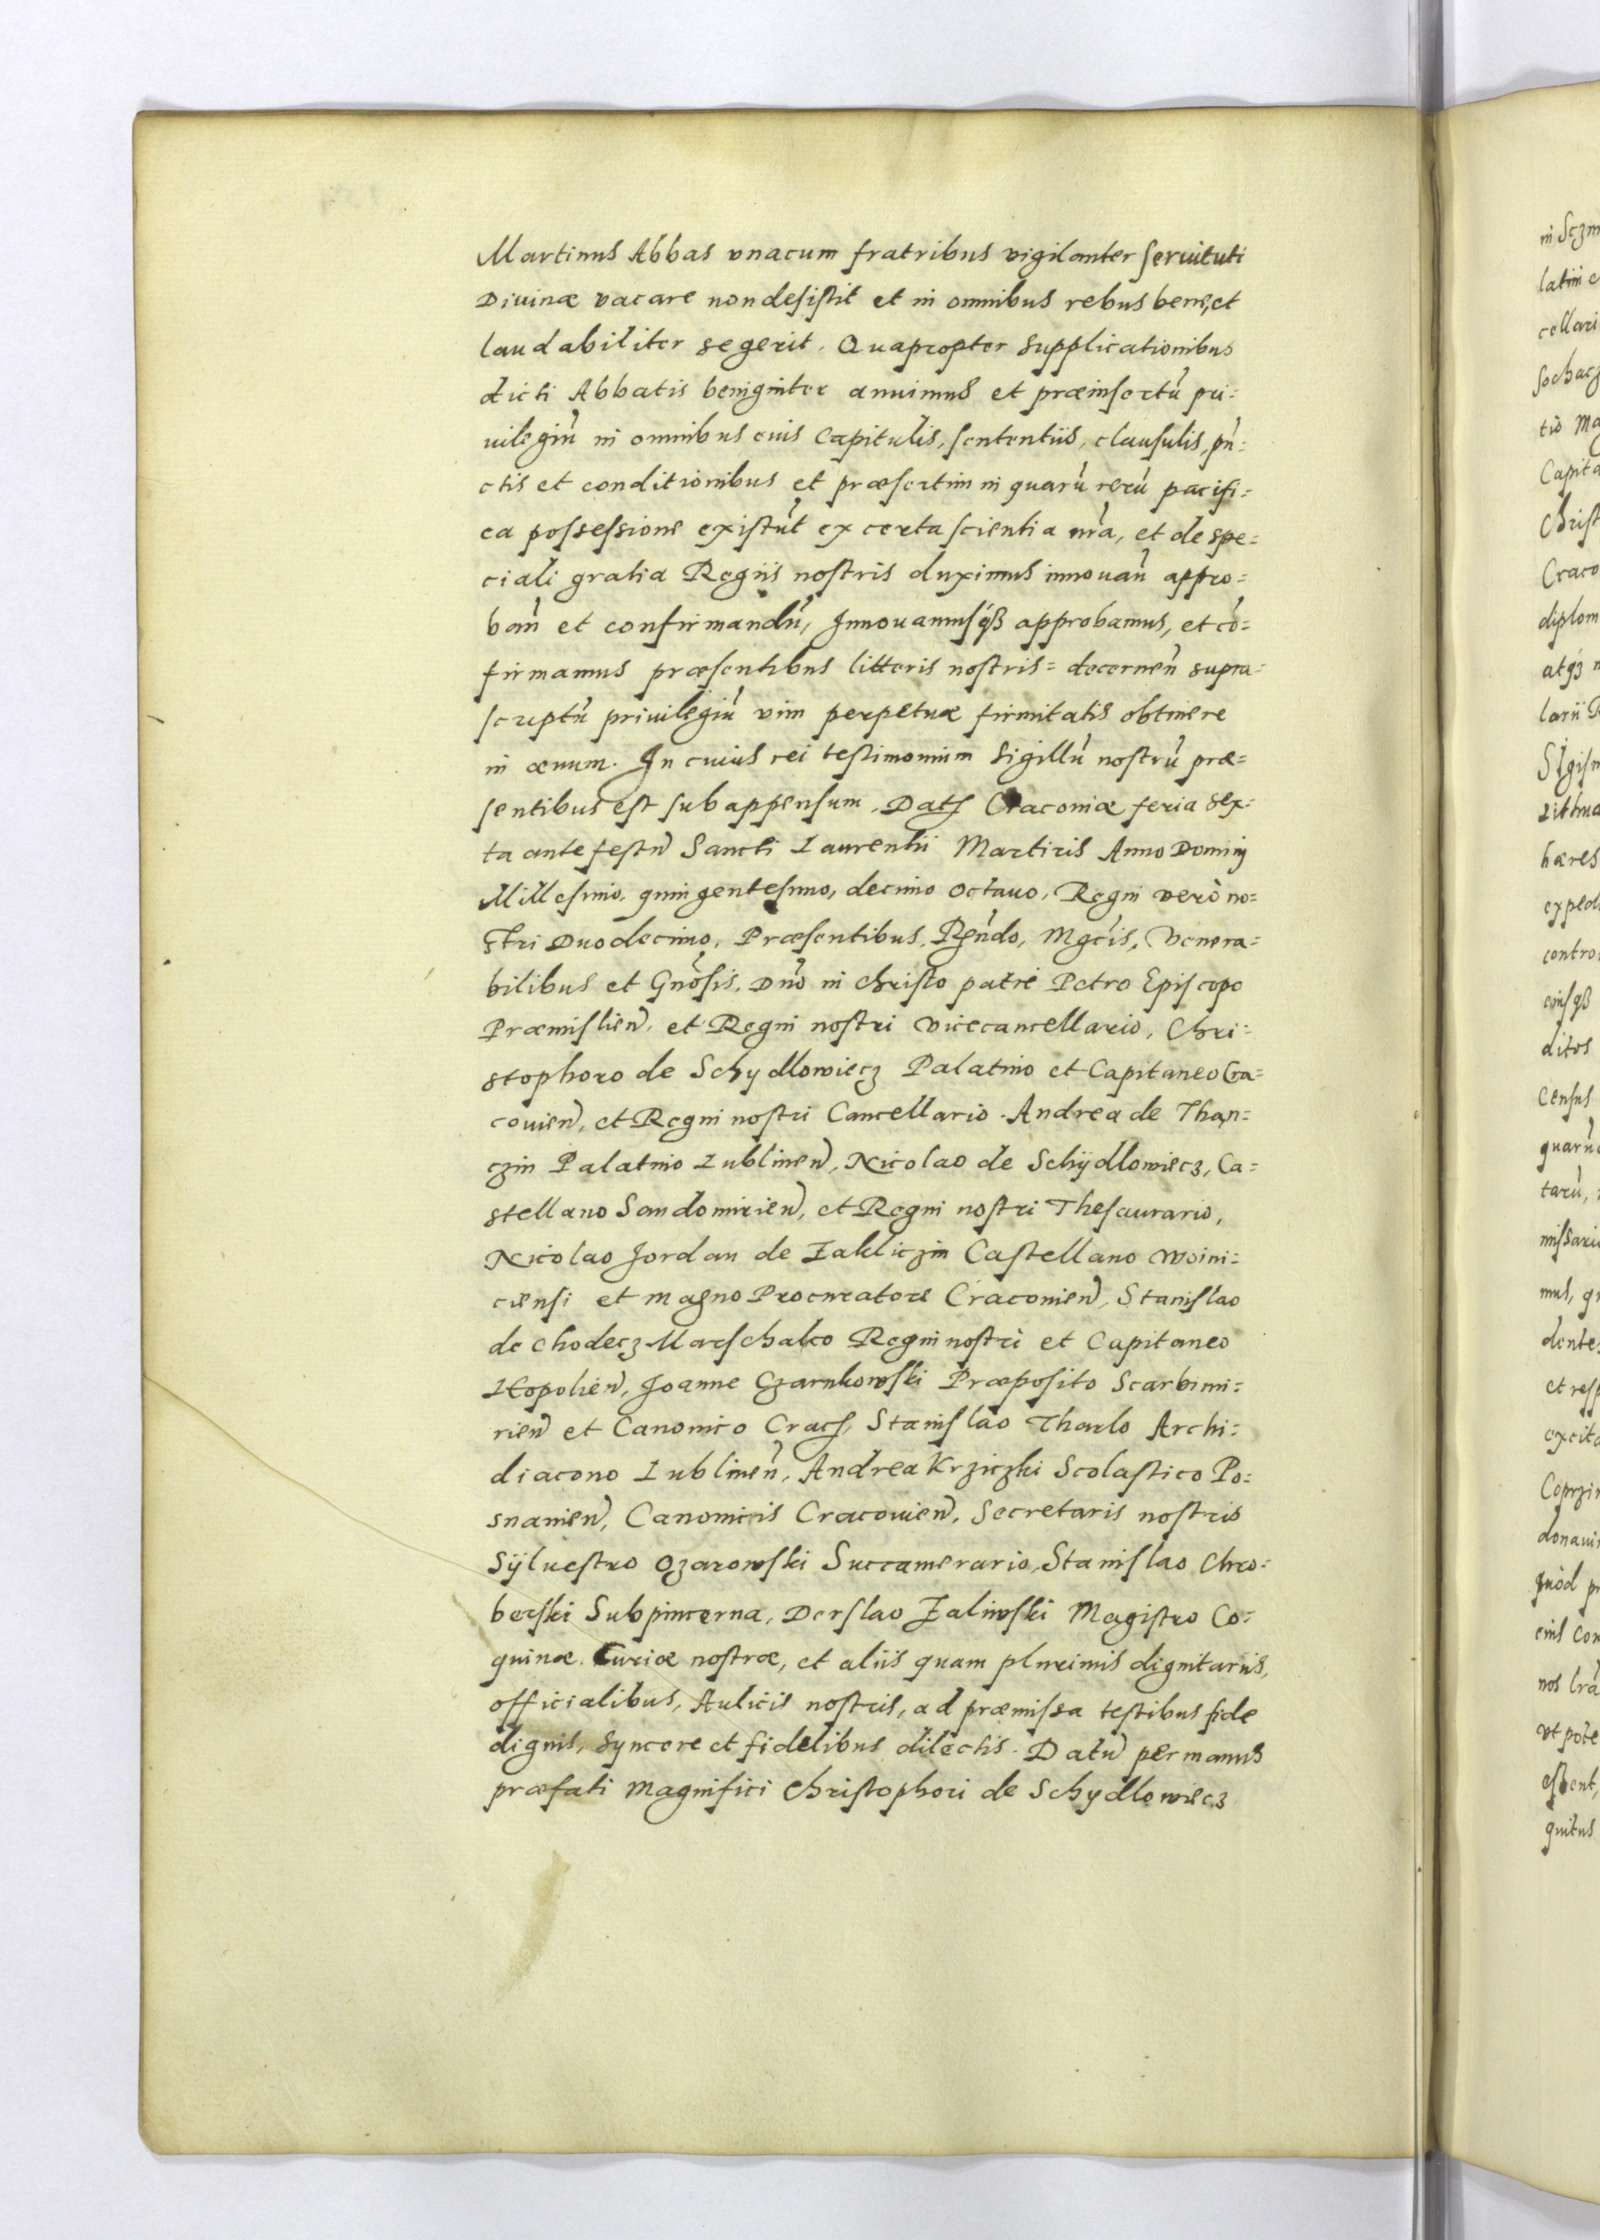 Martinus Abbas vnacum fratribus vigilanter seruituti
Diuinæ vacare non desistit et in omnibus rebus bene, et
laudabiliter se gerit. Quapropter supplicationibus
dicti Abbatis benigniter annuimus et præinsertū pri=
uilegiū in omnibus euis Capitulis, sententiis, clausulis, pū=
ctis et conditionibus et præsertim in quarū rerū pacifi=
ca possessione existūt ex certa scientia nrā, et de spe=
ciali gratia Regiis nostris duximus innouan̄ appro=
ban̄ et confirmandū, Innouamusq́ꝫ approbamus, et cō=
firmamus præsentibus litteris nostris= decernen̄ supra=
scriptū priuilegiū vim perpetuæ firmitatis obtinere
in æuum. In cuius rei testimonium Sigillū nostrū præ=
sentibus est subappensum. Datꝭ Cracouiæ feria sex=
ta ante festū Sancti Laurentii Martiris Anno Dominij
Millesimo, quingentesimo, decimo octauo, Regni verò no=
stri Duodecimo, Præsentibus, Rn̄do, Mgcīs, Venera=
bilibus et Gnōsis, Dnō in christo patre Petro Episcopo
Præmislien̄, et Regni nostri vicecancellario, Chri=
stophoro de Schydlowiecz Palatino et Capitaneo Cra=
couien̄, et Regni nostri Cancellario. Andrea de Than=
czin Palatino Lublinen̄, Nicolao de Schÿdlowiecz, Ca=
stellano Sandomirien̄, et Regni nostri Thesaurario,
Nicolao Jordan de Zakliczin Castellano Woini=
ciensi et magno Procuratore Cracouien̄, Stanislao
de Chodecz Marschalco Regni nostri et Capitaneo
Leopolien̄, Joanne Czarnkowski Præposito Scarbimi=
rien̄ et Canonico Cracꝭ, Stanislao Tharlo Archi=
diacono Lublinen̄, Andrea Krziczki Scolastico Po=
snanien̄, Canonicis Cracouien̄, Secretaris nostris
Sÿluestro Ozarowski Succamerario, Stanislao Chro=
berski Subpincerna, Derslao Zaliwski Magistro Co=
quinæ Curiæ nostræ, et aliis quam plurimis dignitariis,
officialibus, Aulicis nostris, ad præmissa testibus fide
dignis, syncere et fidelibus dilectis. Datū per manus
præfati Magnifici Christophori de Schydlowiecz